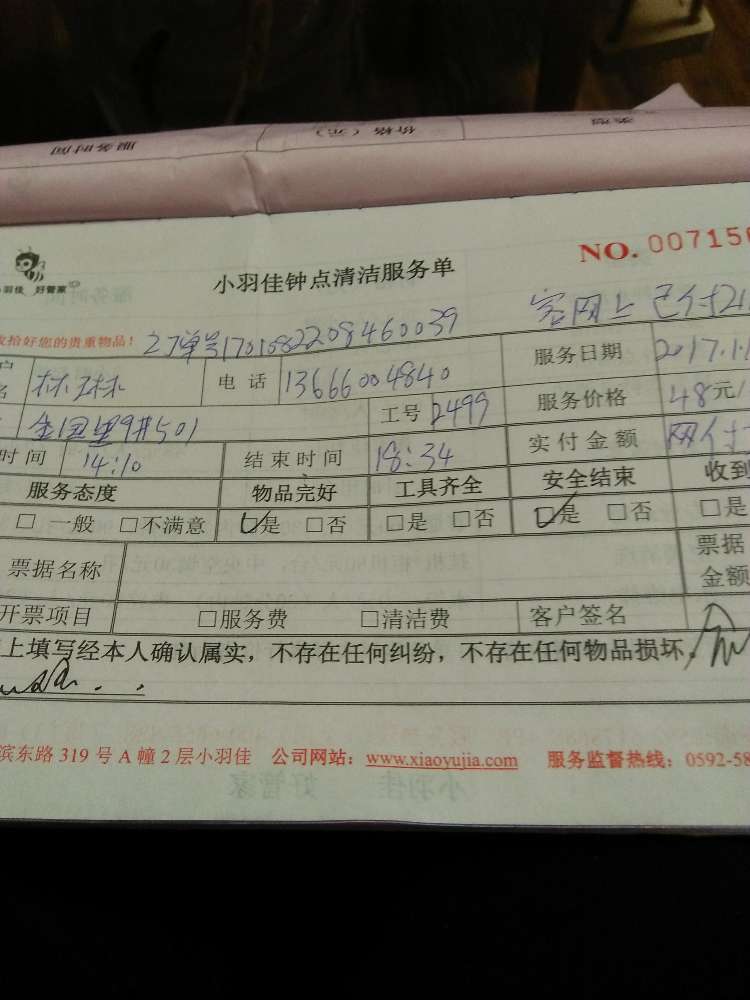 服务时间 价格（元） 类型
NO. 007156
小羽佳 好管家
小羽佳钟点清洁服务单
收拾好您的贵重物品！ 订单号1701082208460039 客网上已付
林琳 电话 13666004840 服务日期 2017.1.1
金园里9#501 工号 2499 服务价格 48元/
时间 14:10 结束时间 18:34 实付金额 网付
服务态度 物品完好 工具齐全 安全结束 收到
□ 一般 □不满意 ☑是 □否 □是 □否 ☑是 □否 □是
票据名称 票据
金额
开票项目 □服务费 □清洁费 客户签名
上填写经本人确认属实，不存在任何纠纷，不存在任何物品损坏，
滨东路 319 号 A 幢 2 层小羽佳 公司网站：www.xiaoyujia.com 服务监督热线：0592-58